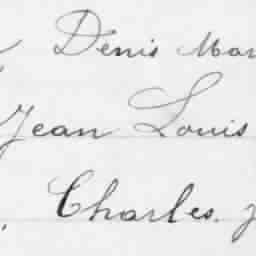 Denis Mar
Jean Louis
Charles. J